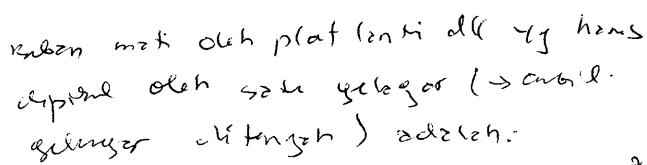 Beban mati oleh plat lantai dll yg harus
dipikul oleh satu gelagar (→ ambil
gelagar ditengah) adalah :